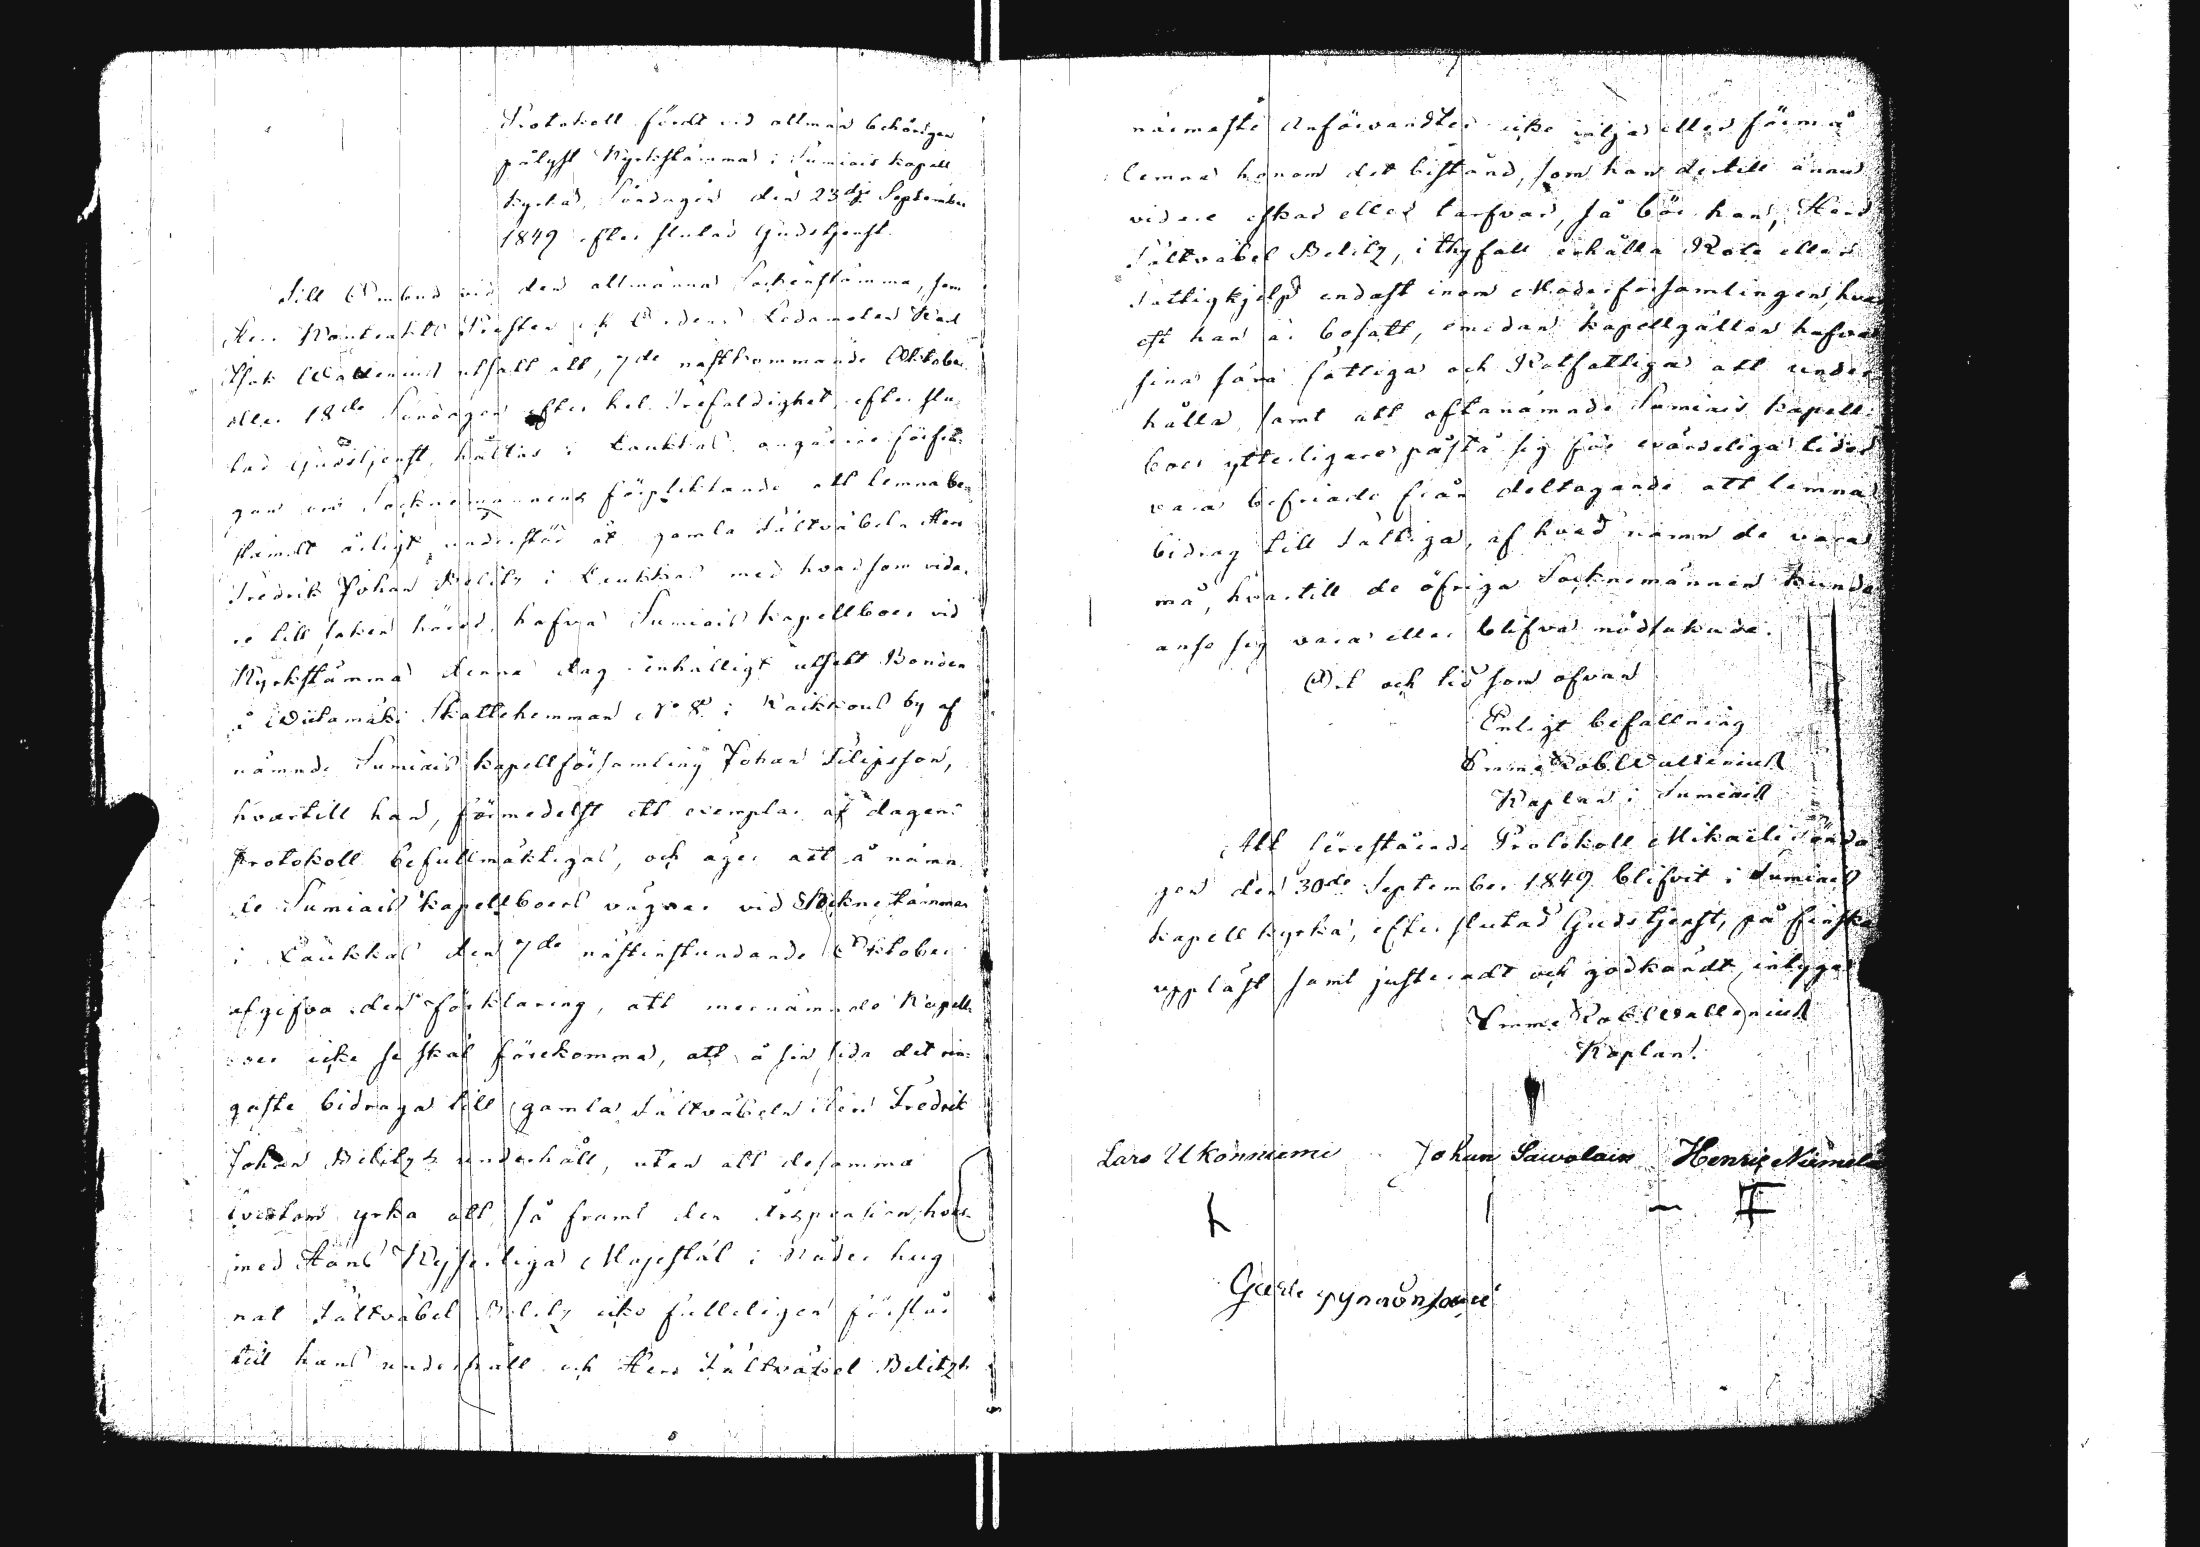 Protokoll fördt vid allmän behörigen
pålyst Kyrkstämma i Sumiais kapell
kyrka, Söndagen den 23dje September
1849 efter slutad Gudstjenst.
Till Ombud vid den allmänna Sockenstämma, som
Herr Kontrakts Prosten och Ordens Ledamoten Karl
Isak Wallenius utsatt att, 7de nästkommande Oktober
eller 18de Söndagen efter hel. Trefaldighet, efter slu-
tad Gudstjenst, hållas i Laukkas angående förfrå-
gan om Socknemännens förpliktande att lemna be-
stämdt årligt understöd åt gamla Fältväbeln Herr
Fredrik Johan Belitz i Laukkas med hvad som vida-
re till saken hörer, hafva Sumiais kapellboer vid
Kyrkstämma denna dag enhälligt utsett Bonden
å Wiitamäki Skattehemman No 8 i Raikkous by af
nämnde Sumiais kapellförsamling Johan Filipsson,
hvartill han, förmedelst ett exemplar af dagens
Protokoll befullmäktigas, och äger att å nämn-
de Sumiais kapellboers vägnar vid Sockenstämman
i Laukkas den 7de nästinstundande Oktober
afgifva den förklaring, att mernämnde Kapell-
boer icke se skäl förekomma, att å sin sida det rin-
gaste bidraga till gamla Fältväbeln Herr Fredrik
Johan Belitz's underhåll, utan att desamma
tvertom yrka att, så framt den Arspension, hvar-
med Hans Kejserliga Majestät i Nåder hug-
nat Fältväbel Belitz icke fulleligen förslår
till hans underhåll och Herr Fältväbel Belitz's
närmaste Anförvandter icke vilja eller förmå
lemna honom det bistånd, som han dertill ännu
vidare eskar eller tarfvar, så bör han, Herr
Fältväbel Belitz, i thy fall erhålla Rote eller
Fattighjelp endast inom Moderförsamlingen, hvar-
est han är bosatt, emedan kapellgällen hafva
sina såna fattiga och Rotfattiga att under-
hålla, samt att oftanämnde Sumiais kapell-
boer ytterligare påstå sig för evärdeliga tider
vara befriade från deltagande att lemna
bidrag till Fattiga, af hvad namn de vara
må, hvartill de öfriga Socknemännen kunde
anse sig vara eller blifva nödsakade.
Ort och tid som ofvan
Enligt befallning
Emme Rob. Wallenius
Kaplan i Sumiais
Att förestående Protokoll Mikaeli Sönda-
gen den 30de September 1849 blifvit i Sumiais
kapell kyrka, efter slutad Gudstjenst, på finska
uppläst samt justeradt och godkändt, intygar
Emme Rob. Wallenius
Kaplan.
Lars Ukonniemi Johan Sawolain Henric Niemelä